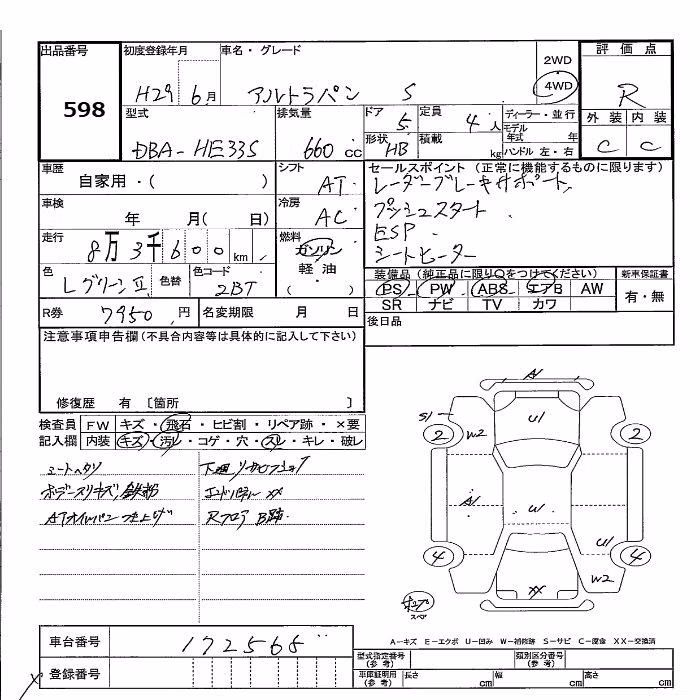 出品番号
598
初度登録年月
H29 6月
車名・グレード
アルトラパン S
2WD
4WD
評価点
R
外装 内装
C C
型式
DBA-HE33S
排気量
660 cc
ドア
5
定員
4人
形状
HB
積載
kg
ディーラー・並行
モデル年式 年
ハンドル 左・右
車歴
自家用・( )
シフト
AT
車検
年 月( 日)
冷房
AC
走行
8万3千600 km
燃料
ガソリン
軽油
( )
色
Lグリーン II
色替
色コード
2BT
R券
7950円
名変期限
月 日
セールスポイント (正常に機能するものに限ります)
レーダーブレーキサポート
プッシュスタート
ESP
シートヒーター
装備品 (純正品に限り○をつけてください)
PS PW ABS エアB AW
SR ナビ TV カワ
新車保証書
有・無
後日品
注意事項申告欄(不具合内容等は具体的に記入して下さい)
修復歴 有 〔箇所 〕
検査員記入欄
FW キズ・飛石・ヒビ割・リペア跡・×要
内装 キズ・汚レ・コゲ・穴・スレ・キレ・破レ
シートヘタリ
ボデースリキズ,鉄粉
ATオイルパン
エンドパネル XX
Rフロア B跡
A
S1
2
W2
U1
2
A
U
4
U1
W2
4
XX
スペア
A-キズ E-エクボ U-凹み W-補修跡 S-サビ C-腐食 XX-交換済
車台番号
172565
登録番号
型式指定番号(参考)
類別区分番号(参考)
車庫証明用(参考)
長さ cm
幅 cm
高さ cm